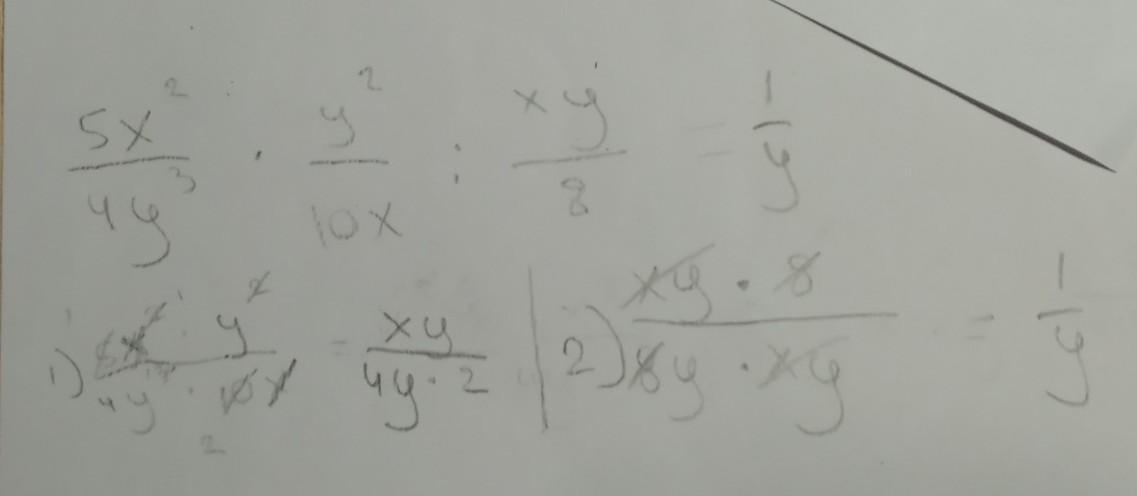 5x²/4y³ · y²/10x : xy/8 = 1/y
1) 5x² · y²/4y³ · 10x = xy/4y · 2 | 2) xy · 8/8y · xy = 1/y